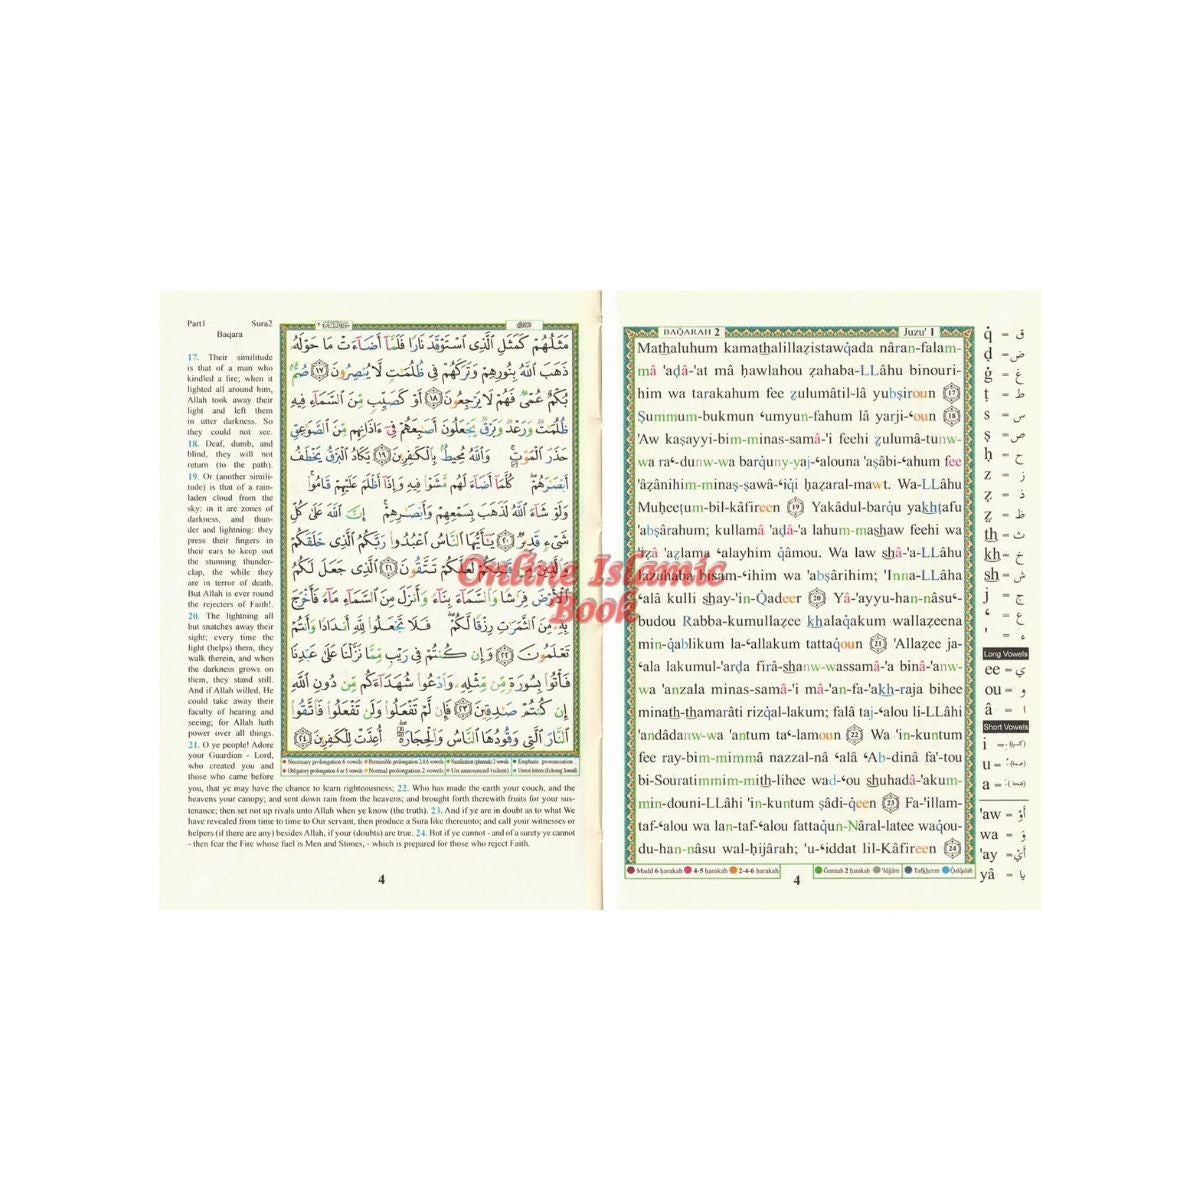 Part1 Sura2
Baqara
17. Their similitude
is that of a man who
kindled a fire; when it
lighted all around him,
Allah took away their
light and left them
in utter darkness. So
they could not see.
18. Deaf, dumb, and
blind, they will not
return (to the path).
19. Or (another simili-
tude) is that of a rain-
laden cloud from the
sky: in it are zones of
darkness, and thun-
der and lightning: they
press their fingers in
their ears to keep out
the stunning thunder-
clap, the while they
are in terror of death.
But Allah is ever round
the rejecters of Faith!.
20. The lightning all
but snatches away their
sight; every time the
light (helps) them, they
walk therein, and when
the darkness grows on
them, they stand still.
And if Allah willed, He
could take away their
faculty of hearing and
seeing; for Allah hath
power over all things.
21. O ye people! Adore
your Guardian - Lord,
who created you and
those who came before
you, that ye may have the chance to learn righteousness; 22. Who has made the earth your couch, and the
heavens your canopy; and sent down rain from the heavens; and brought forth therewith fruits for your sus-
tenance; then set not up rivals unto Allah when ye know (the truth). 23. And if ye are in doubt as to what We
have revealed from time to time to Our servant, then produce a Sura like thereunto; and call your witnesses or
helpers (if there are any) besides Allah, if your (doubts) are true. 24. But if ye cannot - and of a surety ye cannot
- then fear the Fire whose fuel is Men and Stones, - which is prepared for those who reject Faith.
مَثَلُهُمْ كَمَثَلِ ٱلَّذِى ٱسْتَوْقَدَ نَارًا فَلَمَّآ أَضَآءَتْ مَا حَوْلَهُۥ
ذَهَبَ ٱللَّهُ بِنُورِهِمْ وَتَرَكَهُمْ فِى ظُلُمَٰتٍ لَّا يُبْصِرُونَ ١٧ صُمٌّۢ
بُكْمٌ عُمْىٌ فَهُمْ لَا يَرْجِعُونَ ١٨ أَوْ كَصَيِّبٍ مِّنَ ٱلسَّمَآءِ فِيهِ
ظُلُمَٰتٌ وَرَعْدٌ وَبَرْقٌ يَجْعَلُونَ أَصَٰبِعَهُمْ فِىٓ ءَاذَانِهِم مِّنَ ٱلصَّوَٰعِقِ
حَذَرَ ٱلْمَوْتِ ۚ وَٱللَّهُ مُحِيطٌۢ بِٱلْكَٰفِرِينَ ١٩ يَكَادُ ٱلْبَرْقُ يَخْطَفُ
أَبْصَٰرَهُمْ ۖ كُلَّمَآ أَضَآءَ لَهُم مَّشَوْا۟ فِيهِ وَإِذَآ أَظْلَمَ عَلَيْهِمْ قَامُوا۟ ۚ
وَلَوْ شَآءَ ٱللَّهُ لَذَهَبَ بِسَمْعِهِمْ وَأَبْصَٰرِهِمْ ۚ إِنَّ ٱللَّهَ عَلَىٰ كُلِّ
شَىْءٍ قَدِيرٌ ٢٠ يَٰٓأَيُّهَا ٱلنَّاسُ ٱعْبُدُوا۟ رَبَّكُمُ ٱلَّذِى خَلَقَكُمْ
وَٱلَّذِينَ مِن قَبْلِكُمْ لَعَلَّكُمْ تَتَّقُونَ ٢١ ٱلَّذِى جَعَلَ لَكُمُ
ٱلْأَرْضَ فِرَٰشًا وَٱلسَّمَآءَ بِنَآءً وَأَنزَلَ مِنَ ٱلسَّمَآءِ مَآءً فَأَخْرَجَ
بِهِۦ مِنَ ٱلثَّمَرَٰتِ رِزْقًا لَّكُمْ ۖ فَلَا تَجْعَلُوا۟ لِلَّهِ أَندَادًا وَأَنتُمْ
تَعْلَمُونَ ٢٢ وَإِن كُنتُمْ فِى رَيْبٍ مِّمَّا نَزَّلْنَا عَلَىٰ عَبْدِنَا
فَأْتُوا۟ بِسُورَةٍ مِّن مِّثْلِهِۦ وَٱدْعُوا۟ شُهَدَآءَكُم مِّن دُونِ ٱللَّهِ
إِن كُنتُمْ صَٰدِقِينَ ٢٣ فَإِن لَّمْ تَفْعَلُوا۟ وَلَن تَفْعَلُوا۟ فَٱتَّقُوا۟
ٱلنَّارَ ٱلَّتِى وَقُودُهَا ٱلنَّاسُ وَٱلْحِجَارَةُ ۖ أُعِدَّتْ لِلْكَٰفِرِينَ ٢٤
Necessary prolongation 6 vowels Permissible prolongation 2,4,6 vowels Nazalization (ghunnah) 2 vowels Emphatic pronunciation
Obligatory prolongation 4 or 5 vowels Normal prolongation 2 vowels Un announced (silent) Unrest letters (Echoing Sound)
4
BAQARAH 2 Juzu' 1
Mathaluhum kamathalillaẓistawq̇ada nâran-falam-
mâ 'aḍâ-'at mâ ḥawlahou ẓahaba-LLâhu binouri-
him wa tarakahum fee ẓulumâtil-lâ yubṣiroun 17
Ṣummum-bukmun ʻumyun-fahum lâ yarji-ʻoun 18
'Aw kaṣayyi-bim-minas-samâ-'i feehi ẓulumâ-tunw-
wa raʻ-dunw-wa barq̇uny-yaj-ʻalouna 'aṣâbi-ʻahum fee
'âẓânihim-minaṣ-ṣawâ-ʻiq̇i ḥaẓaral-mawt. Wa-LLâhu
Muḥeeṭum-bil-kâfireen 19 Yakâdul-barq̇u yakhṭafu
'abṣârahum; kullamâ 'aḍâ-'a lahum-mashaw feehi wa
'iẓâ 'aẓlama ʻalayhim q̇âmou. Wa law shâ-'a-LLâhu
laẓahaba bisam-ʻihim wa 'abṣârihim; 'Inna-LLâha
ʻalâ kulli shay-'in-Q̇adeer 20 Yâ-'ayyu-han-nâsuʻ-
budou Rabba-kumullaẓee khalaq̇akum wallaẓeena
min-q̇ablikum la-ʻallakum tattaq̇oun 21 'Allaẓee ja-
ʻala lakumul-'arḍa firâ-shanw-wassamâ-'a binâ-'anw-
wa 'anzala minas-samâ-'i mâ-'an-fa-'akh-raja bihee
minath-thamarâti rizq̇al-lakum; falâ taj-ʻalou li-LLâhi
'andâdanw-wa 'antum taʻ-lamoun 22 Wa 'in-kuntum
fee ray-bim-mimmâ nazzal-nâ ʻalâ ʻAb-dinâ fa'-tou
bi-Souratimmim-mith-lihee wad-ʻou shuhadâ-'akum-
min-douni-LLâhi 'in-kuntum ṣâdi-q̇een 23 Fa-'illam-
taf-ʻalou wa lan-taf-ʻalou fattaq̇un-Nâral-latee waq̇ou-
du-han-nâsu wal-ḥijârah; 'u-ʻiddat lil-Kâfireen 24
Madd 6 ḥarakah 4-5 ḥarakah 2-4-6 ḥarakah Ġunnah 2 ḥarakah 'Idġâm Tafkheem Q̇alq̇alah
4
q̇ = ق
ḍ = ض
ġ = غ
ṭ = ط
s = س
ṣ = ص
ḥ = ح
z = ز
ẓ = ذ
ẓ = ظ
th = ث
kh = خ
sh = ش
j = ج
ʻ = ع
' = ء
Long Vowels
ee = ي
ou = و
â = ا
Short Vowels
i =
u =
a =
'aw = أَوْ
wa = وَ
'ay = أَيْ
yâ = يا
Online Islamic
Book